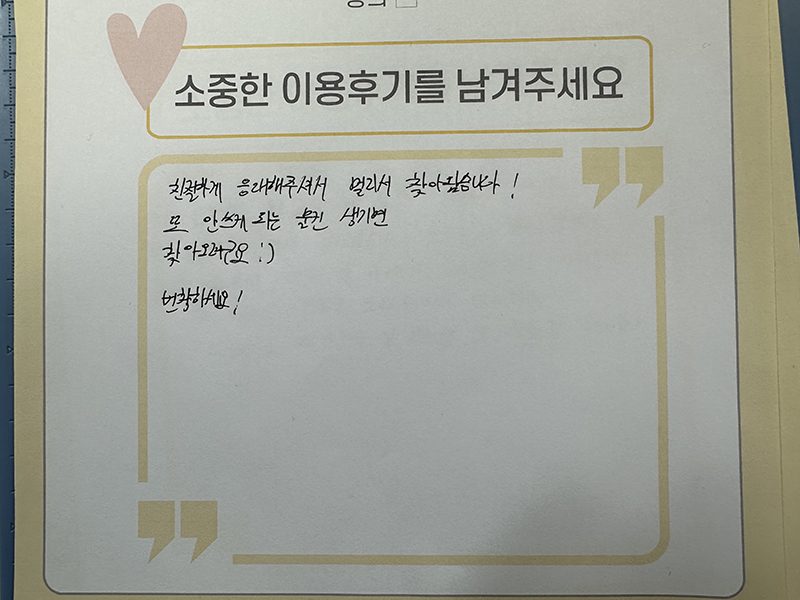 동의 □
소중한 이용후기를 남겨주세요
친절하게 응대해주셔서 멀리서 찾아왔습니다!
또 안쓰게 되는 물건 생기면
찾아오려구요 :)
번창하세요!